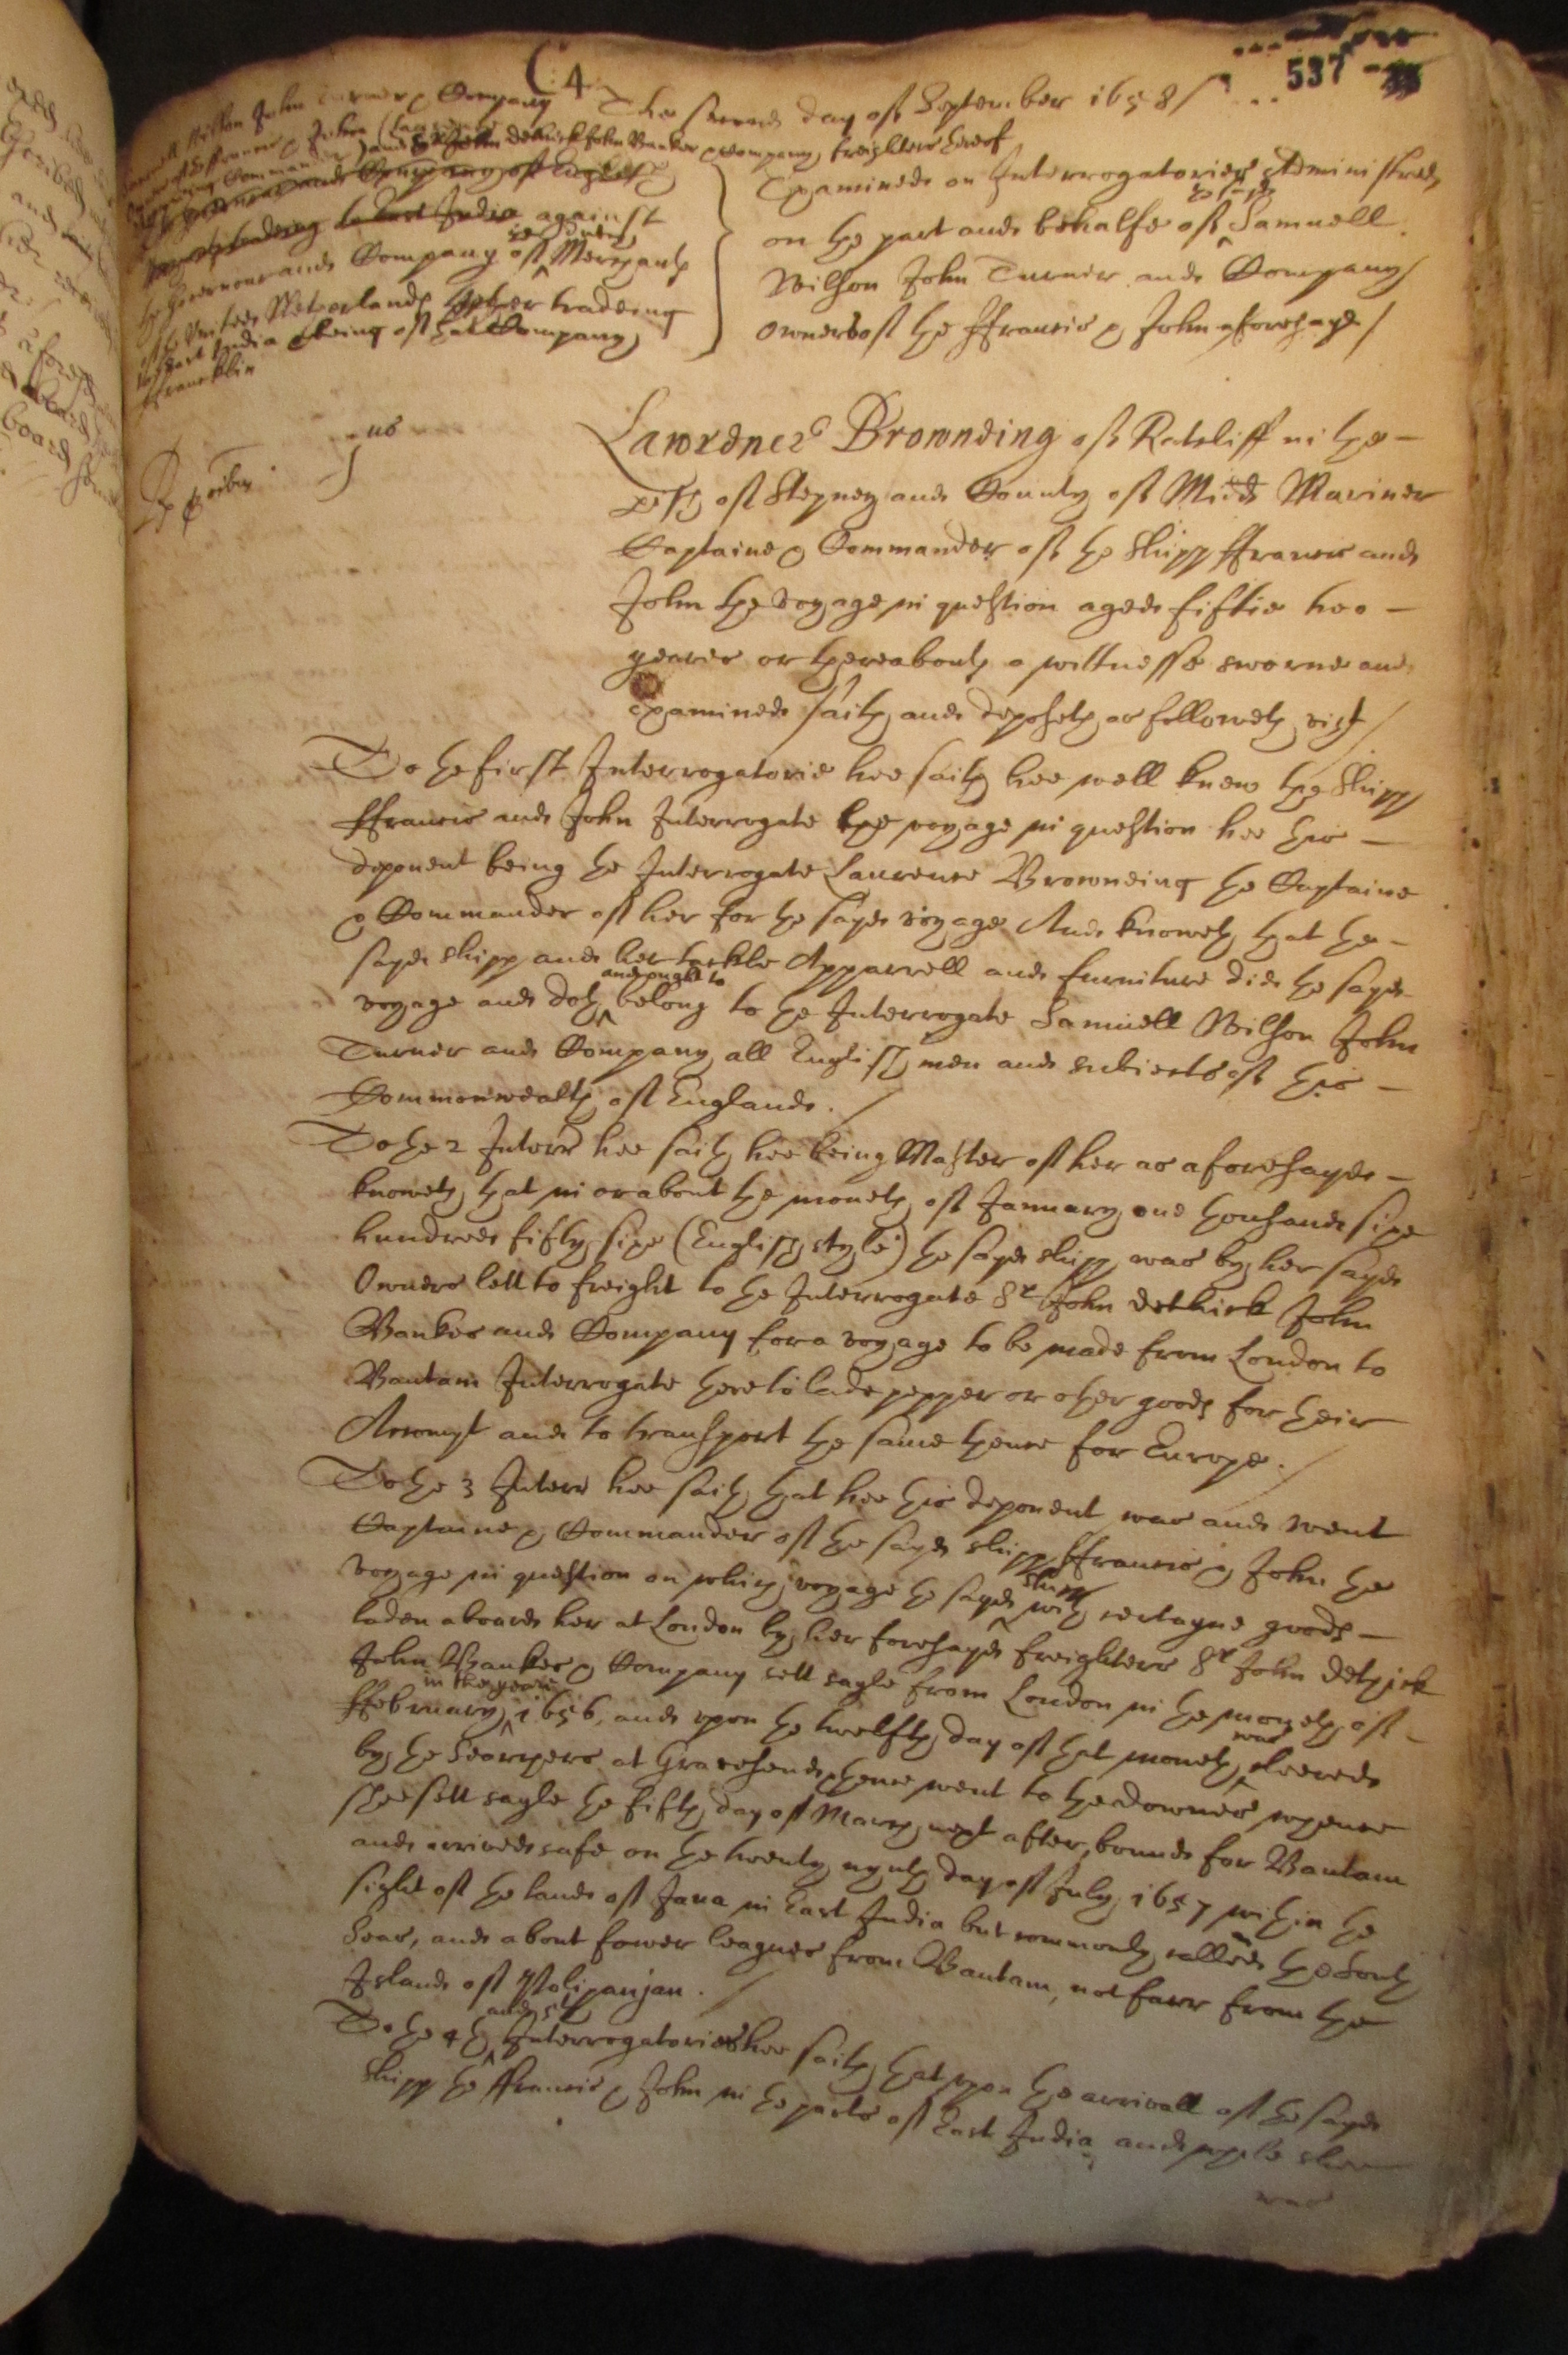 C. 4.
537
The second day of September 1658/
Samuell Wilson John Turner & Company
owners of the ffrancis & John (Lawrence
Browneing Commander) and Sr John Dethick John Bankes & Company freighters thereof
the Governour and Company of English
trading to East India against
the Governour and Company of Merchants
of the United Netherlands together tradeing
to East India being of that Company
ffrancklin
Examined on Interrogatories Administred
on the part and behalfe of Samuell
Wilson John Turner and Company
owners of the ffrancis & John aforesayd/
jus
Lawrence Browneing of Ratcliff in the
psh of Stepney and County of Midd Mariner
Captaine & Commander of the Shipp ffrancis and
John the voyage in question aged fiftie two
yeares or thereabouts a wittnesse sworne and
examined saith and deposeth as followeth vizt/
To the first Interrogatorie hee saith hee well knew the Shipp
ffrancis and John Interrogate the voyage in question hee this
deponent being the Interrogate Laurence Browneing the Captaine
& Commander of her for the sayd voyage And knoweth that the
sayd shipp and her tackle Apparrell and furniture did the sayd
voyage and doth and ought to belong to the Interrogate Samuell Wilson John
Turner and Company all English men and subiects of this
Commonwealth of England./
To the 2 Interr hee saith hee being Master of her as aforesayd
knoweth that in or about the moneth of January one thousand sixe
hundred fifty sixe (English style) the sayd shipp was by her sayd
Owners lett to freight to the Interrogate Sr John Dethick John
Bankes and Company for a voyage to be made from London to
Bantam Interrogate there to lade pepper or other goods for their
Accompt and to transport the same thence for Europe./
To the 3 Interr hee saith that hee this deponent was and went
Captaine & Commander of the sayd shipp ffrancis & John the
voyage in question on which voyage the sayd shipp with certayne goods
laden aboard her at London by her foresayd freighters Sr John Dethick
John Bankes & Company sett sayle from London in the moneth of
ffebruary in the yeare 1656, and upon the twelfth day of that moneth was cleered
by the Searchers at Gravesend, thence went to the downes whence
shee sett sayle the fifth day of March next after, bound for Bantam
and arrived safe on the twenty nynth day of July 1657 within the
sight of the land of Java in East India but commonly called the South
Seas, and about fower leagues from Bantam, not farr from the
Island of Polipanjan./
To the 4th and 5th Interrogatories hee saith that upon the arrivall of the sayd
shipp the ffrancis & John in the parts of East India and while shee
was